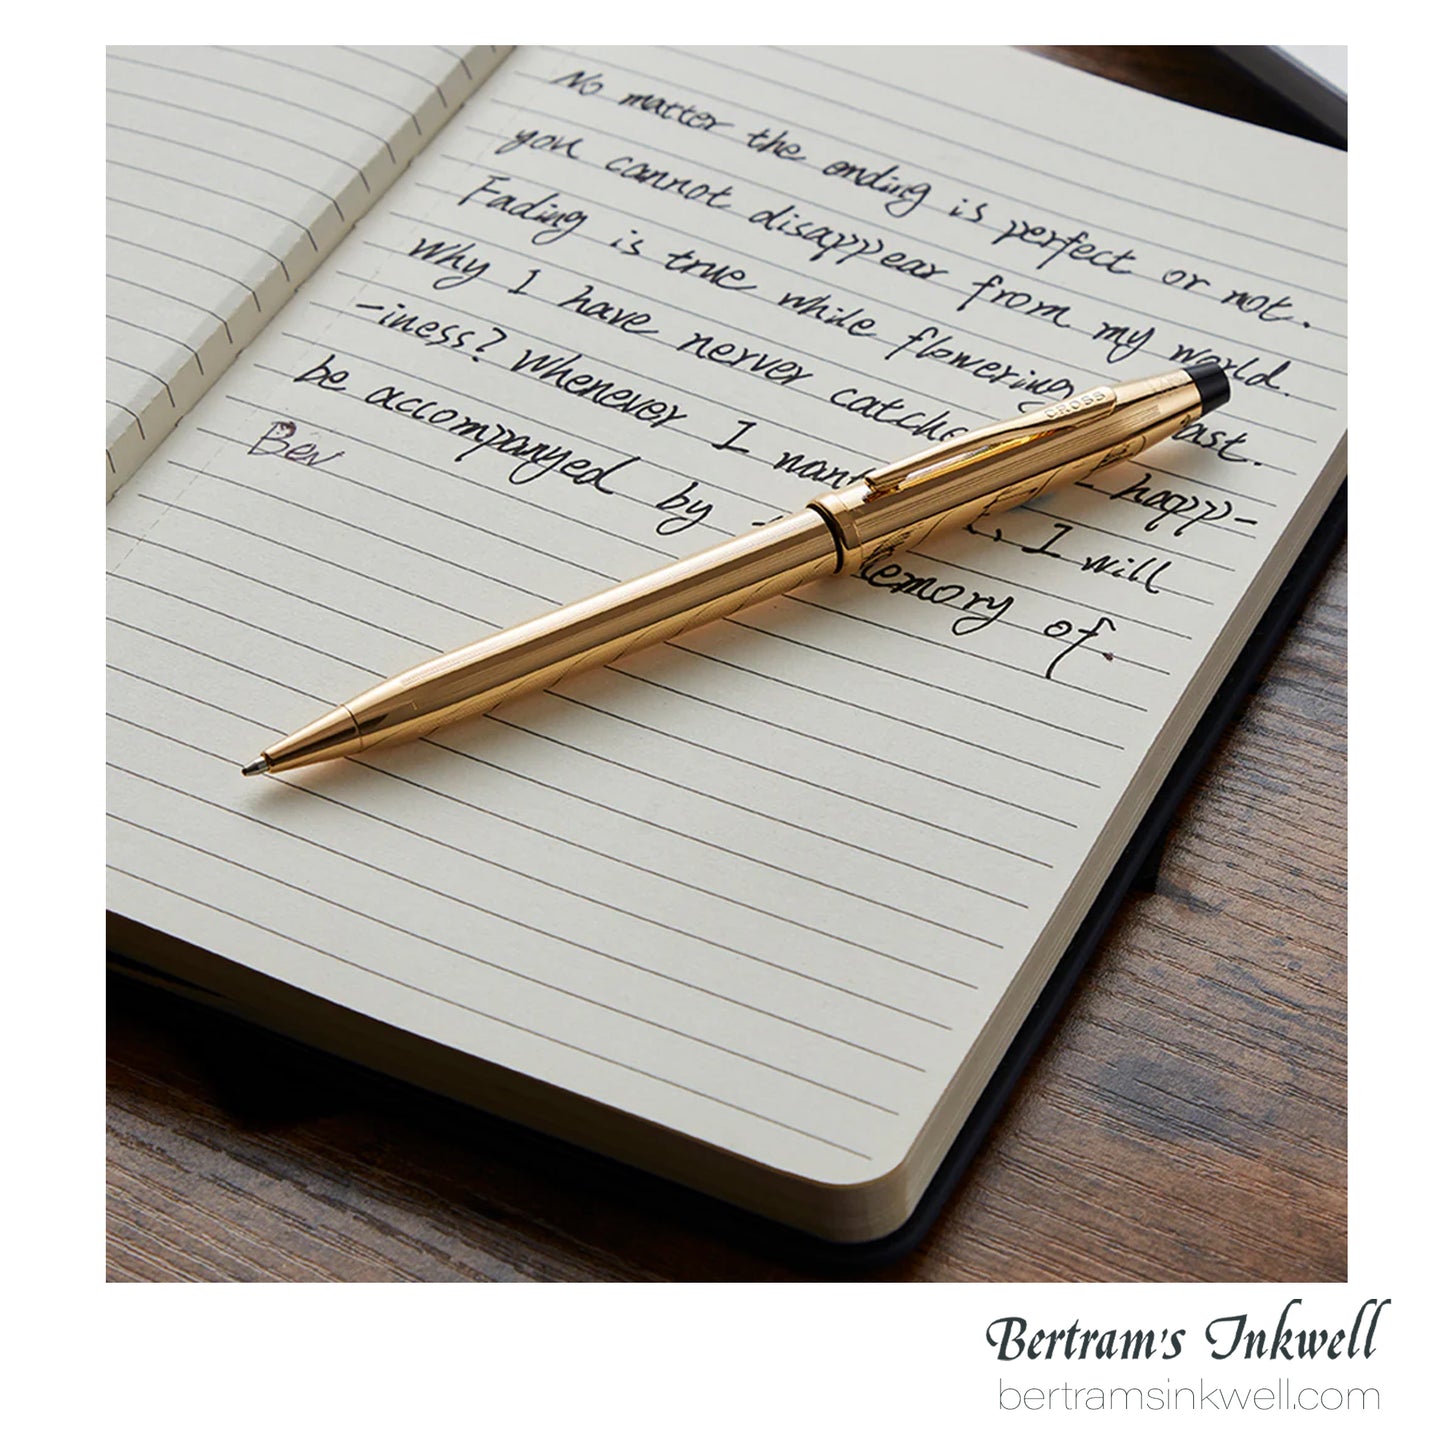 No matter the ending is perfect or not.
you cannot disappear from my world.
Fading is true while flowering past.
Why I have nerver catche happ-
-iness? Whenever I want I will
be accompanyed by memory of.
Bev
CROSS
Bertram's Inkwell
bertramsinkwell.com